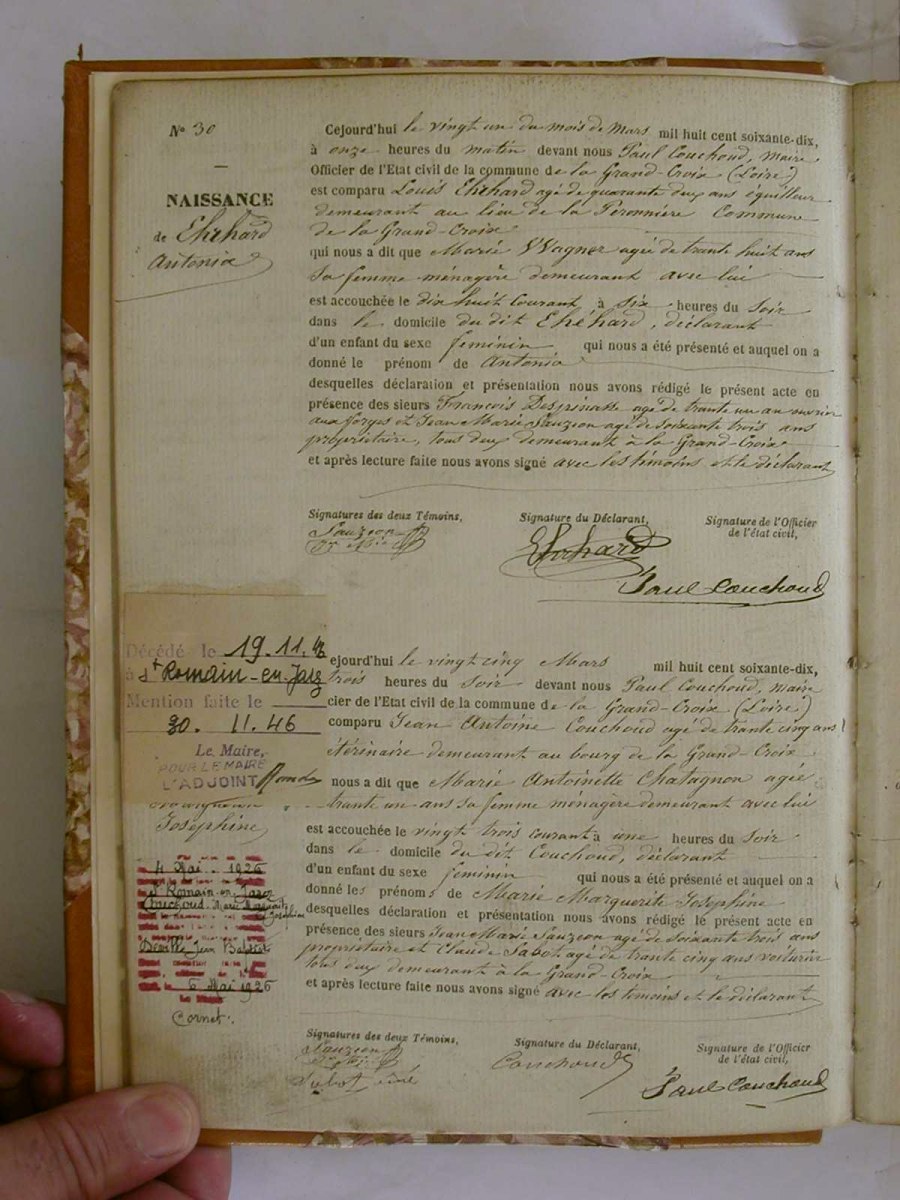 N° 30
NAISSANCE
de Ehrhard
Antonia
Cejourd'hui le vingt un du mois de Mars mil huit cent soixante-dix,
à onze heures du matin devant nous Paul Couchoud, maire
Officier de l'Etat civil de la commune de la Grand-Croix (Loire)
est comparu Louis Ehrhard agé de quarante deux ans éguilleur
demeurant au lieu de la Peronnière Commune
de la Grand-Croix
qui nous a dit que Marie Wagner agée de trante huit ans
sa femme ménagère demeurant avec lui
est accouchée le dix huit Courant à six heures du Soir
dans le domicile du dit Ehéhard, déclarant
d'un enfant du sexe feminin qui nous a été présenté et auquel on a
donné le prénom de Antonia
desquelles déclaration et présentation nous avons rédigé le présent acte en
présence des sieurs François Despinasse agé de trante un an ouvrier
aux forges et Jean Marie Sauzeon agé de soixante trois ans
propriétaire, tous deux demeurant à la Grand-Croix
et après lecture faite nous avons signé avec les témoins et le déclarant
Signatures des deux Témoins,
Signature du Déclarant,
Signature de l'Officier
de l'état civil,
Sauzeon
Ehrhard
Paul Couchoud
Décédé le 19.11.46
à St Romain-en-Jarz
Mention faite le
30. 11.46
Le Maire,
POUR LE MAIRE
L'ADJOINT
Joséphine
4 Mai 1926
St Romain-en-Jarez
Couchoud Marie Marguerite
Joséphine
Deville Jean Baptiste
6 Mai 1926
Le Maire
Cornet.
ejourd'hui le vingt cinq Mars mil huit cent soixante-dix,
trois heures du Soir devant nous Paul Couchoud, maire
cier de l'Etat civil de la commune de la Grand-Croix (Loire)
comparu Jean Antoine Couchoud agé de trante cinq ans
étérinaire demeurant au bourg de la Grand-Croix
nous a dit que Marie Antoinette Chatagnon agée
trante un ans sa femme ménagère demeurant avec lui
est accouchée le vingt trois courant à une heures du Soir
dans le domicile du dit Couchoud, déclarant
d'un enfant du sexe feminin qui nous a été présenté et auquel on a
donné les prénoms de Marie Marguerite Josephine
desquelles déclaration et présentation nous avons rédigé le présent acte en
présence des sieurs Jean Marie Sauzeon agé de soixante trois ans
propriétaire et Claude Sabot agé de trante cinq ans voiturier
tous deux demeurant à la Grand-Croix
et après lecture faite nous avons signé avec les témoins et le déclarant
Signatures des deux Témoins,
Signature du Déclarant,
Signature de l'Officier
de l'état civil,
Sauzeon
Couchoud
Paul Couchoud